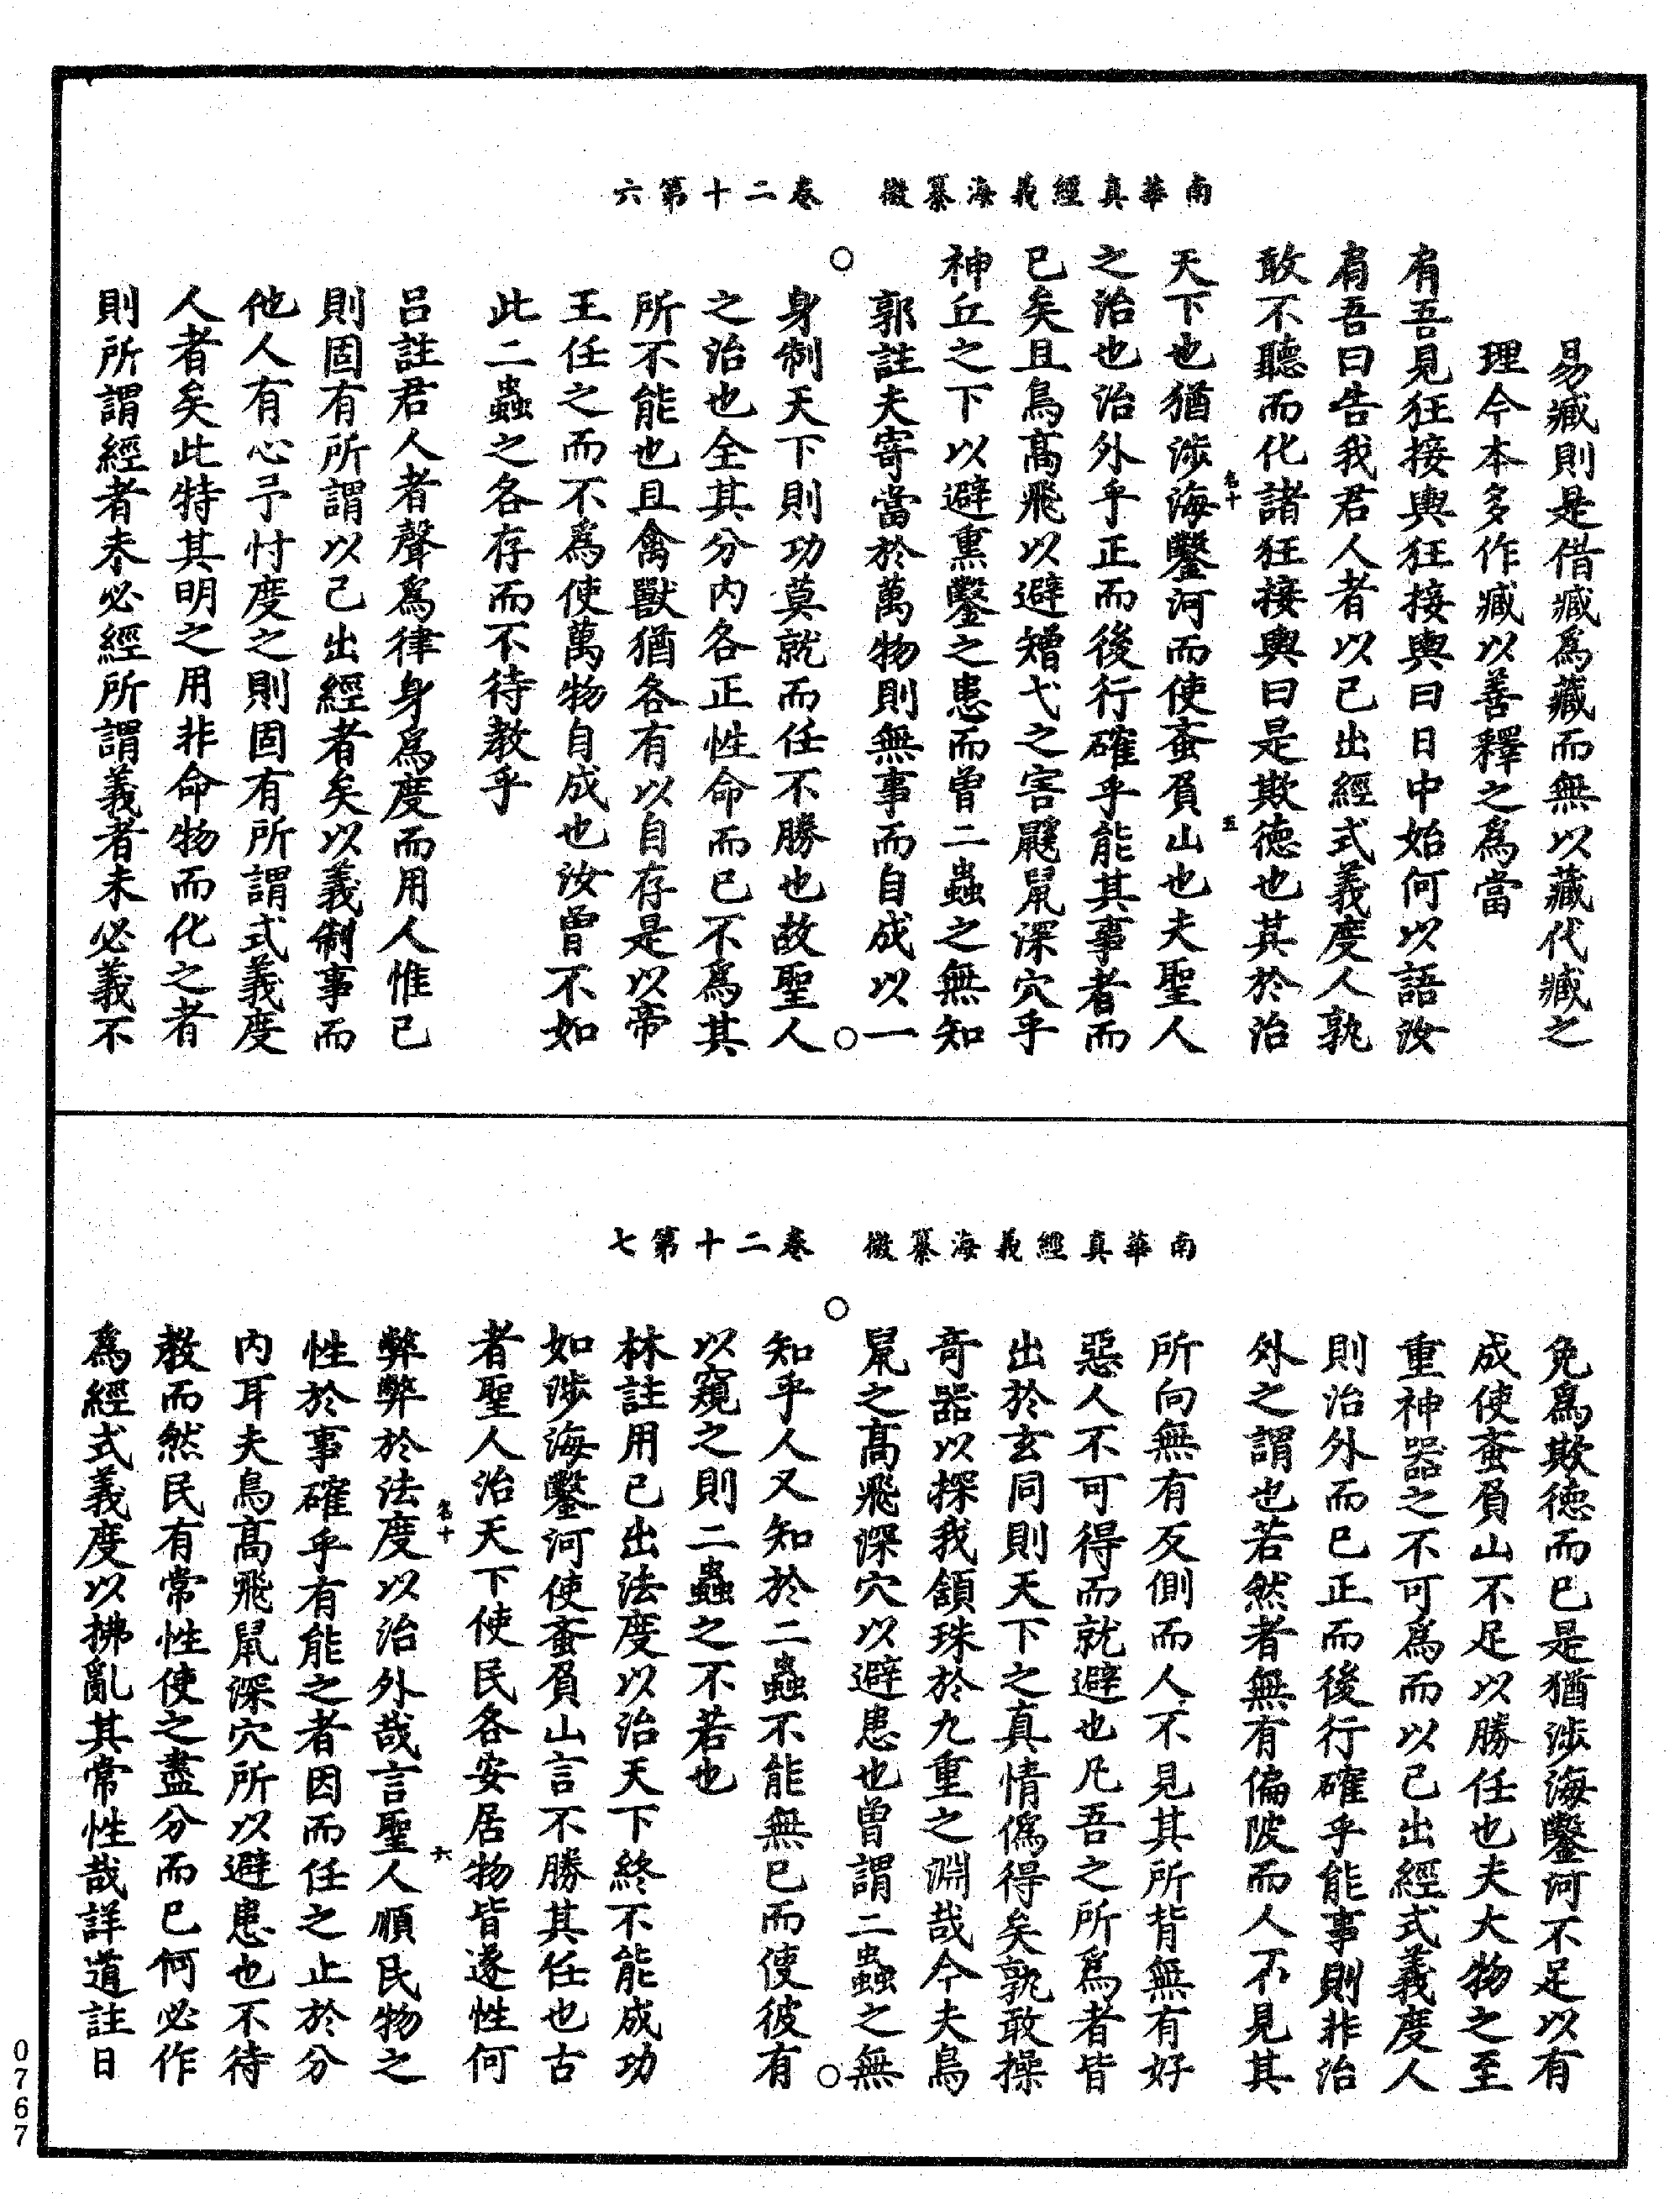 南華真經義海纂微　卷二十第六
易臧則是借臧爲藏而無以藏代臧之
理今本多作臧以善釋之爲當
肩吾見狂接輿狂接輿曰日中始何以語汝
肩吾曰告我君人者以己出經式義度人孰
敢不聽而化諸狂接輿曰是欺德也其於治
名十
五
天下也猶涉海鑿河而使蚉負山也夫聖人
之治也治外乎正而後行確乎能其事者而
已矣且鳥高飛以避矰弋之害鼷鼠深穴乎
神丘之下以避熏鑿之患而曾二蟲之無知
郭註夫寄當於萬物則無事而自成以一
身制天下則功莫就而任不勝也故聖人
之治也全其分內各正性命而已不爲其
所不能也且禽獸猶各有以自存是以帝
王任之而不爲使萬物自成也汝曾不如
此二蟲之各存而不待教乎
呂註君人者聲爲律身爲度而用人惟己
則固有所謂以己出經者矣以義制事而
他人有心予忖度之則固有所謂式義度
人者矣此特其明之用非命物而化之者
則所謂經者未必經所謂義者未必義不
南華真經義海纂微　卷二十第七
免爲欺德而已是猶涉海鑿河不足以有
成使蚉負山不足以勝任也夫大物之至
重神器之不可爲而以己出經式義度人
則治外而已正而後行確乎能事則非治
外之謂也若然者無有偏陂而人不見其
所向無有反側而人不見其所背無有好
惡人不可得而就避也凡吾之所爲者皆
出於玄同則天下之真情僞得矣孰敢操
奇器以探我頷珠於九重之淵哉今夫鳥
鼠之高飛深穴以避患也曾謂二蟲之無
知乎人又知於二蟲不能無已而使彼有
以窺之則二蟲之不若也
林註用己出法度以治天下終不能成功
如涉海鑿河使蚉負山言不勝其任也古
者聖人治天下使民各安居物皆遂性何
名十
六
弊弊於法度以治外哉言聖人順民物之
性於事確乎有能之者因而任之止於分
內耳夫鳥高飛鼠深穴所以避患也不待
教而然民有常性使之盡分而已何必作
爲經式義度以拂亂其常性哉詳道註日
0767